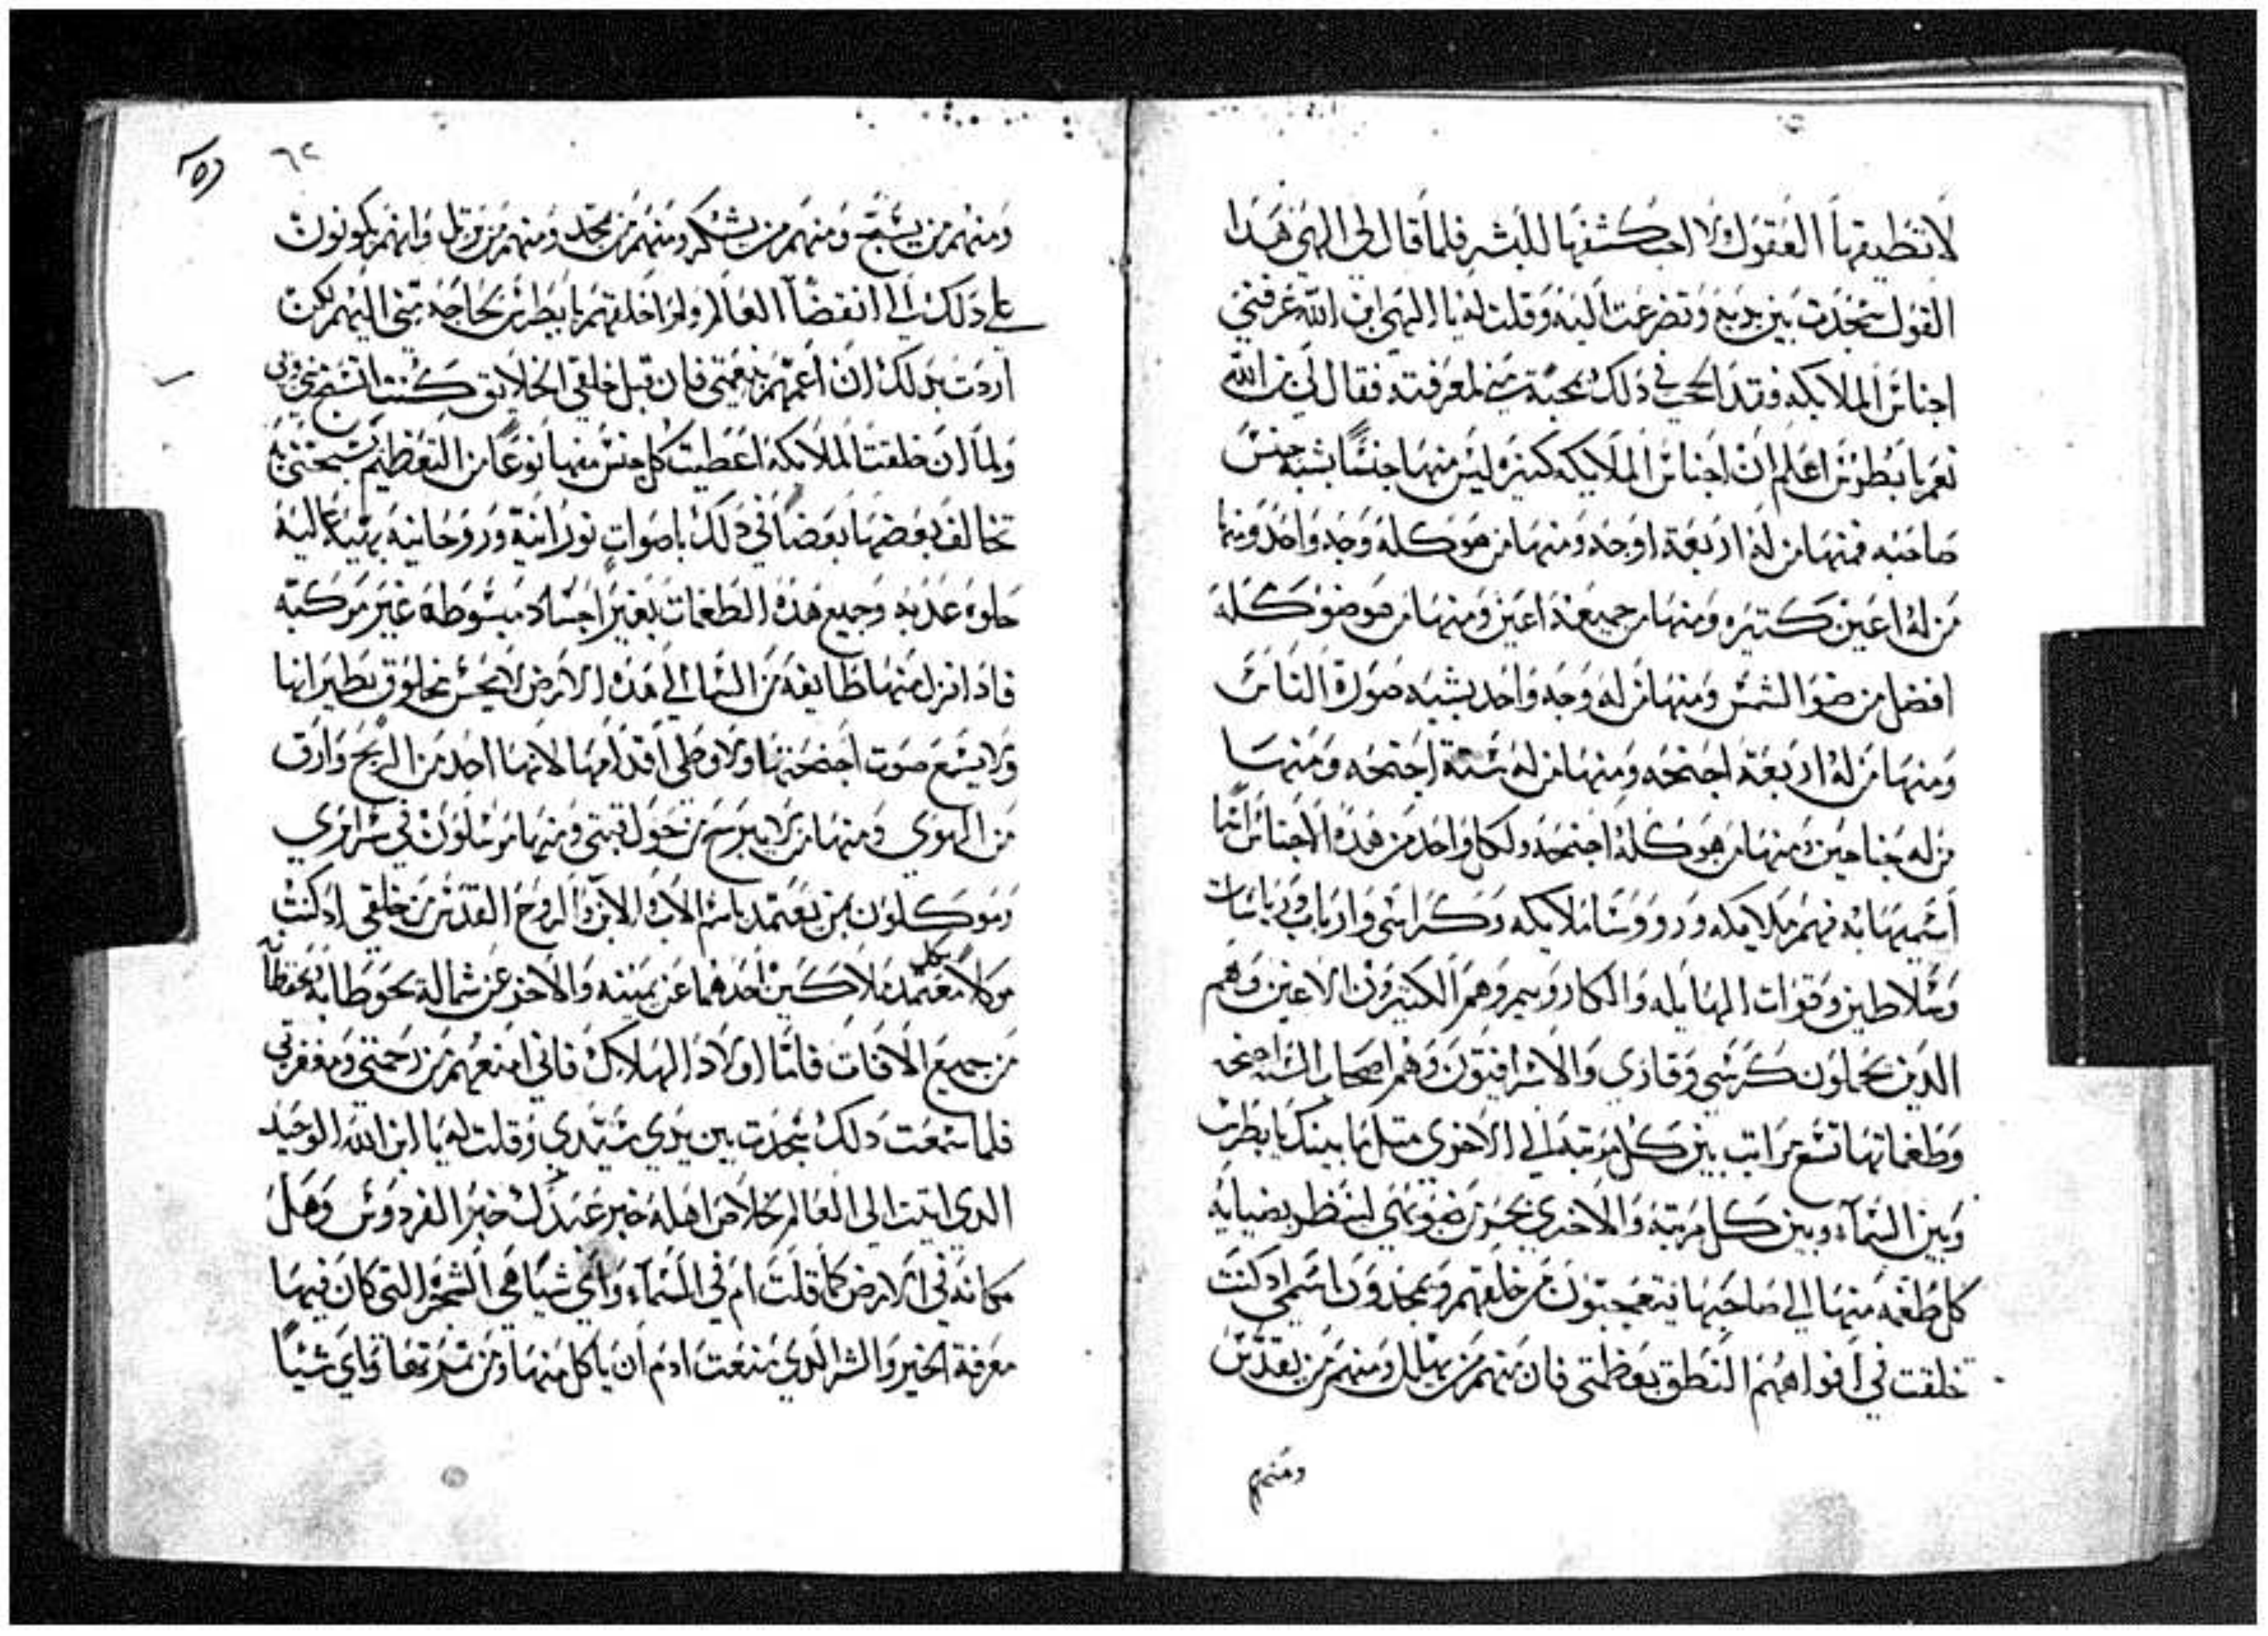 لا تطيقها العقول ولا احب كشفها للبشر فلما قال لي الهي هدا
القول سجدت بين يديه وتضرعت اليه وقلت له يا الهي ابن الله عرفني
اجناس الملايكه فقد الحب في دلك محبة مني لمعرفته فقال لي بن الله
نعم يا بطرس اعلم ان اجناس الملايكه كتيره ليس منها جنسًا يشبه جنس
صاحبه فمنها من له اربعة اوجه ومنها من هو كله وجه واحد ومنها
من له اعين كتيره ومنها من جميعه اعين ومنها من هو ضو كله
افضل من ضو الشمس ومنها من له وجه واحد يشبه صورة الناس
ومنها من له اربعة اجنحه ومنها من له ستة اجنحه ومنها
من له جناحين ومنها من هو كله اجنحه ولكل واحد من هده الاجناس اسما
اسميها به فهم ملايكه وروسا ملايكه وكراسي وارباب ورياسات
وسلاطين وقوات الهايله والكاروبيم وهم الكتيرون الاعين وهم
الدين يحملون كرسي وقاري والاسرافيون وهم اصحاب الستة اجنحه
وطغماتها تسع مراتب بين كل مرتبه الى الاخرى متل ما بينك يا بطرس
وبين السماء وبين كل مرتبه والاخرى بحر من ضو بهي لتنظر بضيايه
كل طغمه منها الى صاحبها فيتعجبون من خلقهم ويمجدون اسمي اد كنت
خلقت في افواههم النطق بعظمتي فان منهم من يهلل ومنهم من يقدس
ومنهم
٦٢
ومنهم من يسبح ومنهم من يشكر ومنهم من يمجد ومنهم من يرتل وانهم يكونون
على دلك الى انقضآ العالم ولم اخلقهم يا بطرس بحاجة مني اليهم لكن
اردت بدلك ان اعمهم بنعمتي فان قبل خلقي الخلايق كنت اسبح
ولما ان خلقت الملايكه اعطيت كل جنس منها نوعًا من التعظيم يسبحني به
تخالف بعضها بعضًا في دلك باصوات نورانية وروحانيه بهية عاليه
حلوه عدبه وجميع هده الطغمات بغير اجساد مبسوطه غير مركبه
فادا نزل منها طايفه من السما الى هده الارض لا يحس مخلوق بطيرانها
ولا يسمع صوت اجنحتها ولا وطي اقدامها لانها احد من الريح وارق
من الهوي ومنها من لا يبرح من حول قبتي ومنها مرسلون في سرايري
وموكلون بمن يعتمد باسم الاب والابن والروح القدس من خلقي اد كنت
موكلًا بكل معتمد ملاكين احدهما عن يمينه والاخر عن شماله يحوطا به يحفظانه
من جميع الافات فاما اولاد الهلاك فاني امنعهم من رحمتي ومغفرتي
فلما سمعت دلك سجدت بين يدي سيدي وقلت له يا ابن الله الوحيد
الدي اتيت الى العالم لخلاص اهله خبر عبدك خبر الفردوس وهل
مكانه في الارض كما قلت ام في السماء واي شيًا هي الشجره التي كان فيها
معرفة الخير والشر الدي منعت ادم ان ياكل منها ومن تمرتها واي شيًا